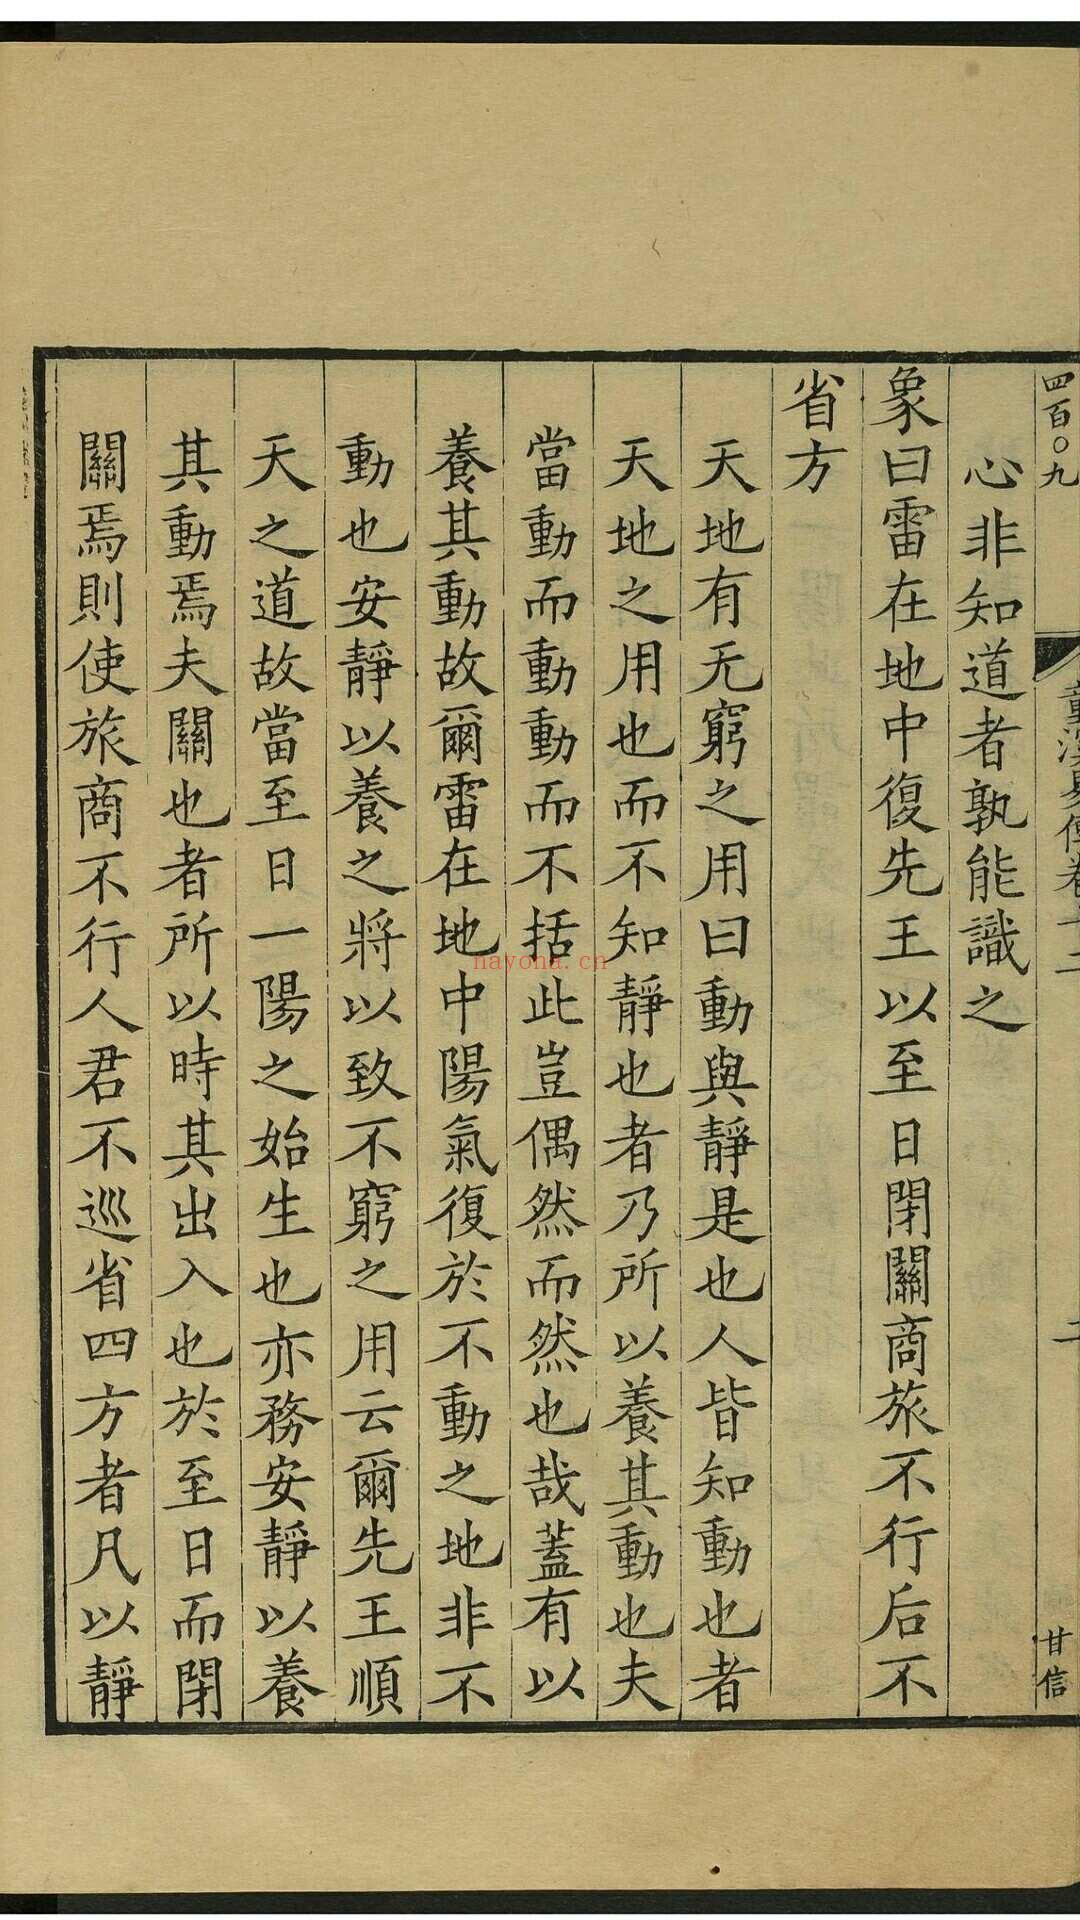 四百〇九
童溪易傳卷十二
二
甘信
心非知道者孰能識之
象曰雷在地中復先王以至日閉關商旅不行后不
省方
天地有无窮之用曰動與靜是也人皆知動也者
天地之用也而不知靜也者乃所以養其動也夫
當動而動動而不括此豈偶然而然也哉蓋有以
養其動故爾雷在地中陽氣復於不動之地非不
動也安靜以養之將以致不窮之用云爾先王順
天之道故當至日一陽之始生也亦務安靜以養
其動焉夫關也者所以時其出入也於至日而閉
關焉則使旅商不行人君不巡省四方者凡以靜
nayona.cn